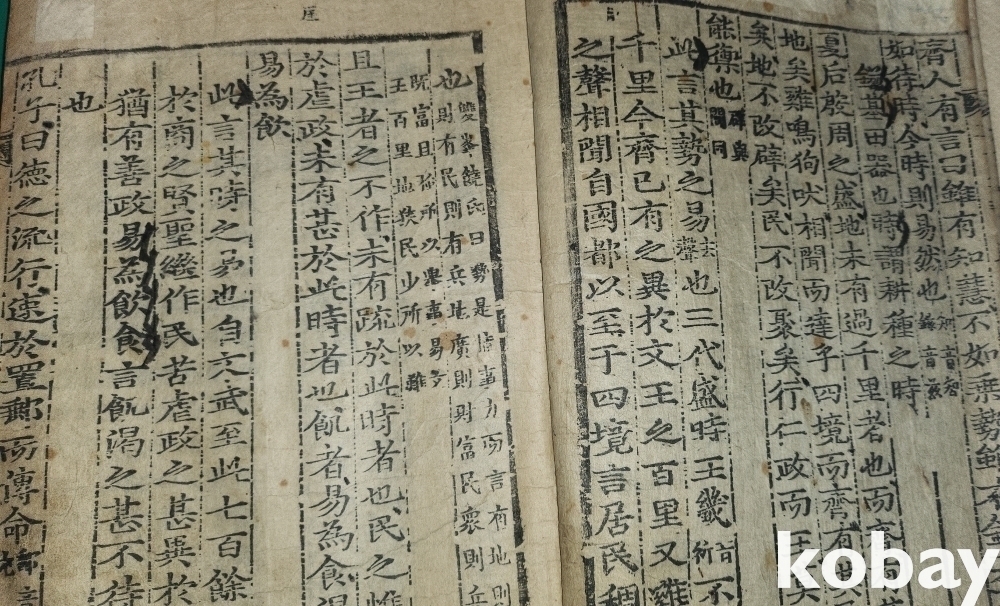 齊人有言曰雖有知慧不如乘勢雖有鎡
如待時今時則易然也知音智鎡音
鎡基田器也時謂耕種之時
夏后殷周之盛地未有過千里者也而齊有其
地矣雞鳴狗吠相聞而達乎四境而齊有
矣地不改辟矣民不改聚矣行仁政而王莫
能禦也辟與闢同
此言其勢之易去聲也三代盛時王畿音祈不
千里今齊已有之異於文王之百里又雞
之聲相聞自國都以至于四境言居民稠
也雙峯饒氏曰勢是事力而言有地則
則有民則有兵地廣則財富民衆則兵
旣富且所以事易
王百里地狹民少所以難
且王者之不作未有疏於此時者也民之憔
於虐政未有甚於此時者也飢者易為食渴
易為飲
此言其時之易也自文武至此七百餘
於商之賢聖繼作民苦虐政之甚異於
猶有善政易為飲食言飢渴之甚不待
也
孔子曰德之流行速於置郵而傳命郵音
匡
kobay